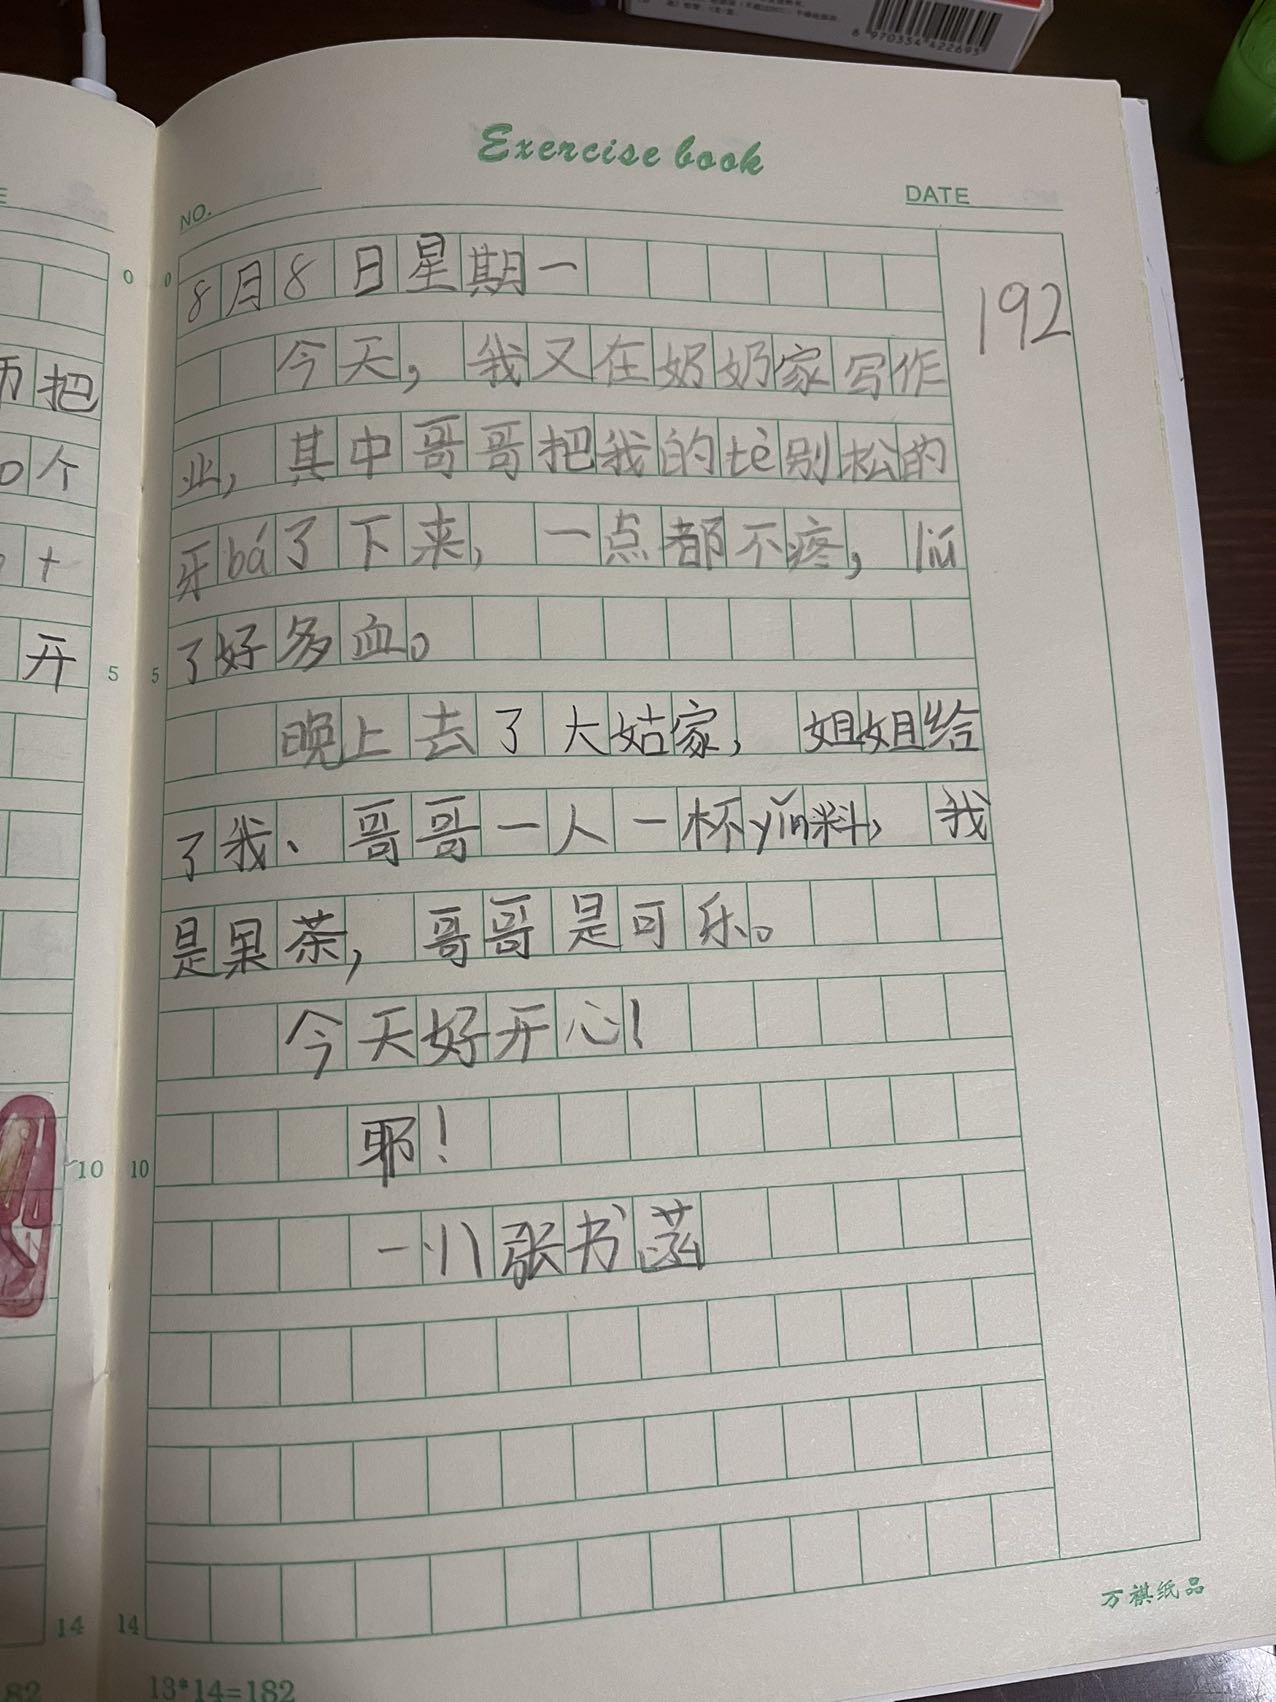 8 970334 422695
Exercise book
NO.
DATE
8月8日星期一
192
今天，我又在奶奶家写作
业，其中哥哥把我的tè别松的
牙bá了下来，一点都不疼，liú
了好多血。
晚上去了大姑家，姐姐给
了我、哥哥一人一杯yǐn料，我
是果茶，哥哥是可乐。
今天好开心！
耶！
张书菡
万祺纸品
13*14=182
把
0个
+
开
0
5
10
14
0
5
10
14
82